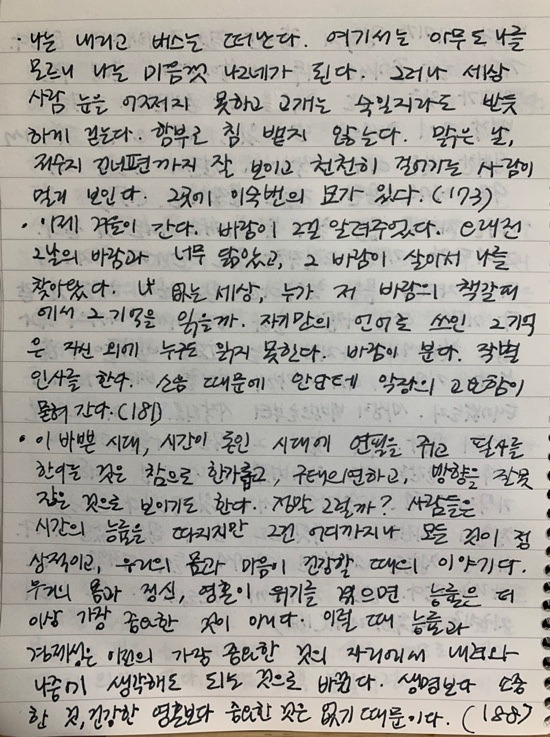 · 나는 내리고 버스는 떠난다. 여기서는 아무도 나를
모르니 나는 마음껏 나그네가 된다. 그러나 세상
사람 눈을 어쩌지 못하고 고개는 숙일지라도 반듯
하게 걷는다. 함부로 침 뱉지 않는다. 맑은 날,
저수지 건너편까지 잘 보이고 천천히 걸어가는 사람이
멀리 보인다. 그곳에 이숙번의 묘가 있다. (173)
· 이제 겨울이 간다. 바람이 그걸 알려주었다. 오래전
그날의 바람과 너무 닮았고, 그 바람이 살아서 나를
찾아왔다. 나 없는 세상, 누가 저 바람의 책갈피
에서 그 기억을 읽을까. 자기만의 언어로 쓰인 그 기억
은 자신 외에 누구도 읽지 못한다. 바람이 분다. 작별
인사를 한다. 소음 때문에 안단테 악장의 고요함이
묻혀 간다. (181)
· 이 바쁜 시대, 시간이 돈인 시대에 연필을 쥐고 필사를
한다는 것은 참으로 한가롭고, 구태의연하고, 방향을 잘못
잡은 것으로 보이기도 한다. 정말 그럴까? 사람들은
시간의 능률을 따지지만 그건 어디까지나 모든 것이 정
상적이고, 우리의 몸과 마음이 건강할 때의 이야기다.
우리의 몸과 정신, 영혼이 위기를 겪으면 능률은 더
이상 가장 중요한 것이 아니다. 이럴 때 능률과
경제성은 이전의 가장 중요한 것의 자리에서 내려와
나중에 생각해도 되는 것으로 바뀐다. 생명보다 소중
한 것, 건강한 영혼보다 중요한 것은 없기 때문이다. (188)